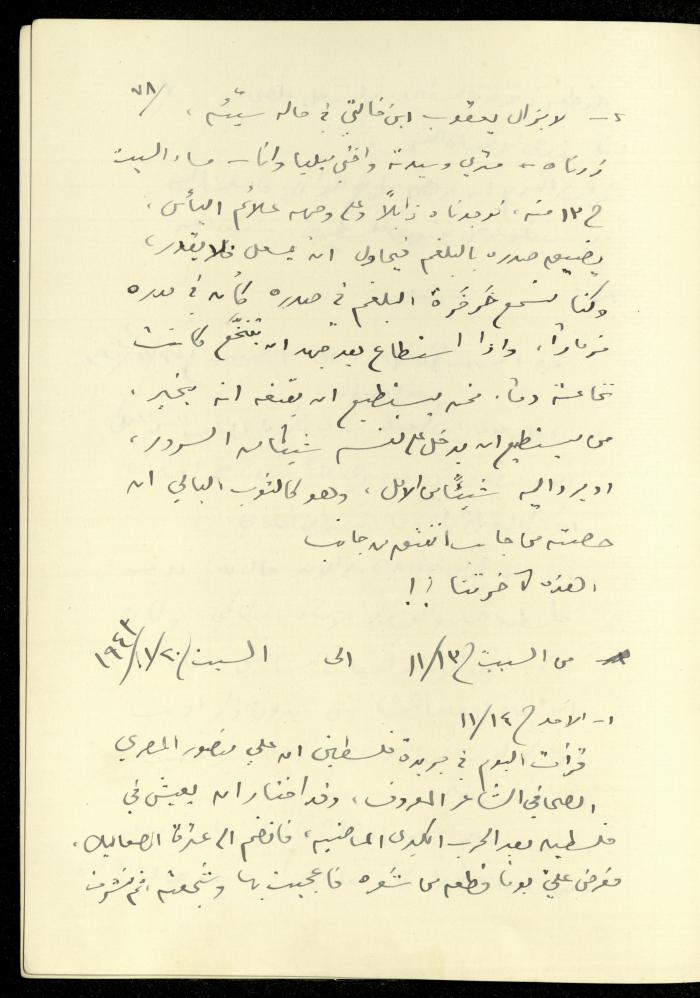 ٧٨/
٤- لا يزال يعقوب ابن خالتي في حاله سيّئه ،
زرناه - متري وسيدته واختي ميليا وانا - مساء السبت
في ١٣ منه ، فوجدناه ذابلاً وعلى وجهه علائم اليأس ،
يضيق صدره بالبلغم فيحاول ان يسعل فلا يقدر ،
وكنا نسمع خَرخَرة البلغم في صدره كأنه في صدره
مزماراً ، واذا استطاع بعد جهد ان يتنخّع كانت
نخاعته دماً . فمن يستطيع ان يقنعه انه بخير .
من يستطيع ان يدخل على نفسه شيئا من السرور ،
او يرد اليه شيئاً من الامل ، وهو كالثوب البالي ان
حصته من جانب انفتق من جانب
اهذه آخرتنا !!
من السبت في ١١/١٣ الى السبت في ١١/٢٠/١٩٤٣
١- الاحد في ١١/١٤
قرأت اليوم في جريدة فلسطين ان علي منصور المصري
الصحافي الشاعر المعروف ، وقد اختار ان يعيش في
فلسطين بعد الحرب الكبرى الماضيه ، فانضم الى عشرة الصعاليك ،
فعرض عليّ يوما قطعه من شعره فاعجبت بها وشجعته ، ثم نشرت